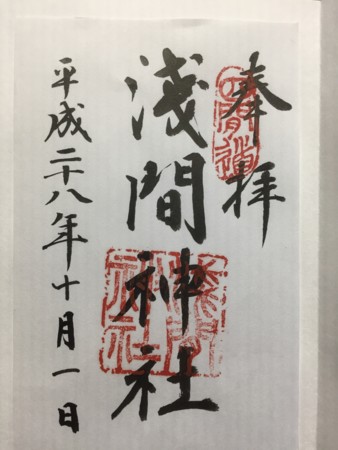 奉拝
淺間神社
平成二十八年十月一日